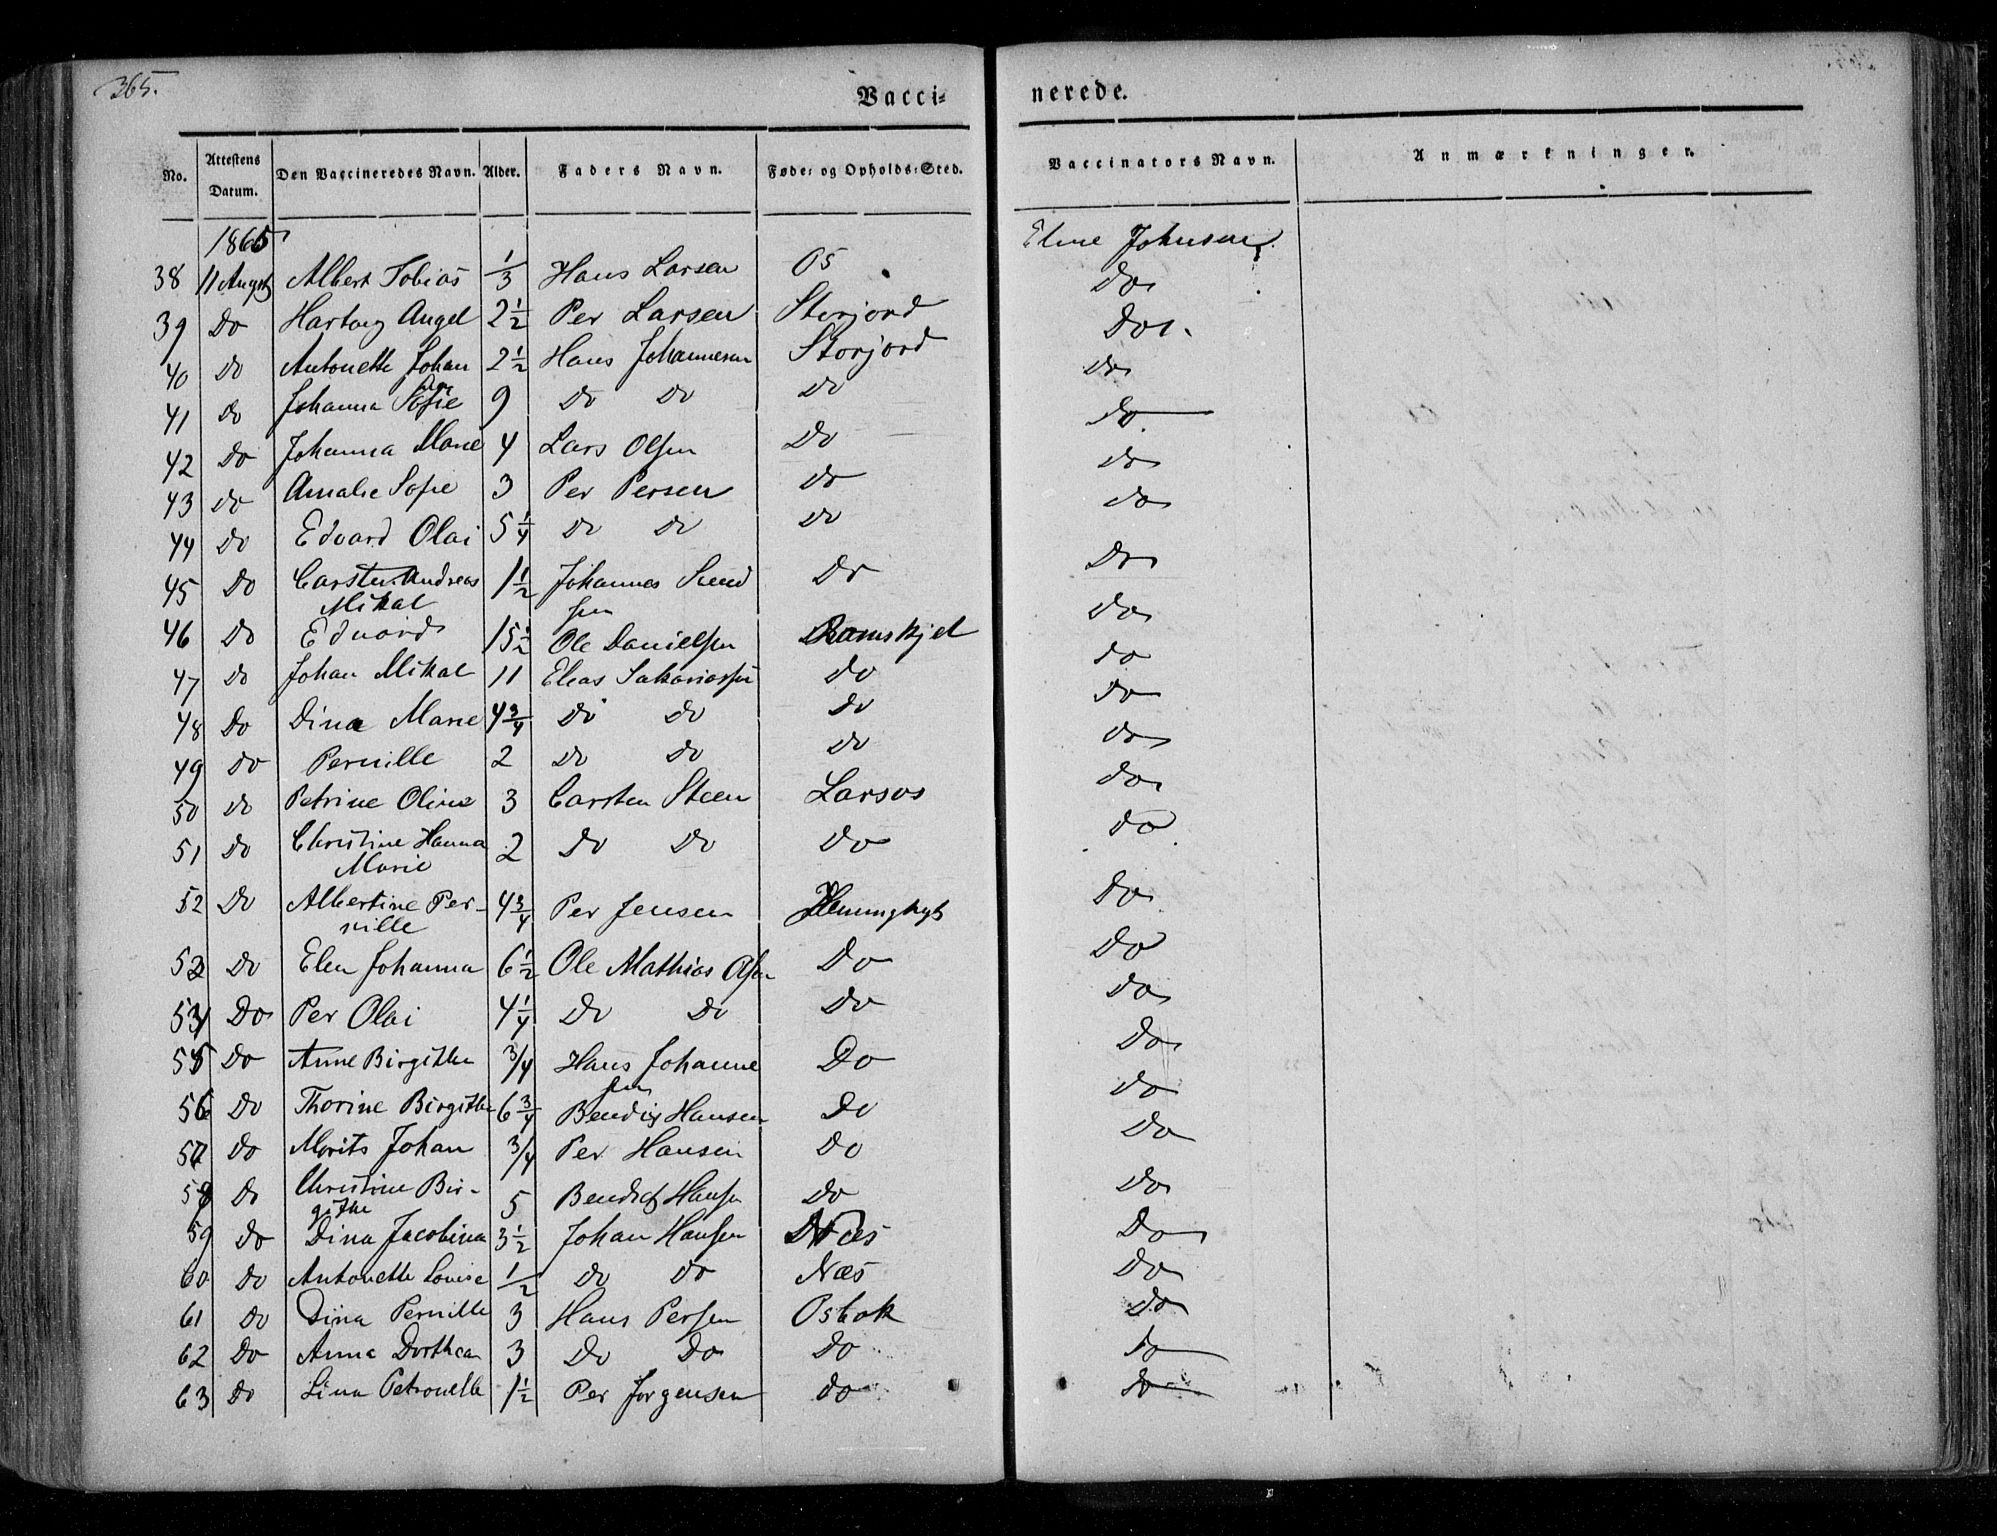 365.
Vacci- nerede.
No. Attestens Datum. Den Vaccineredes Navn. Alder. Faders Navn. Føde- og Opholds-Sted. Vaccinators Navn. Anmærkninger.
1865 Johnsen
38 11 August Albert Tobias 1/3 Hans Larsen Os Do
39 Do Hartvig Angel 2 1/2 Per Larsen Storjord Do
40 Do Antonette Johan 2 1/2 Hans Johannesen Storjord Do
41 Do Johanna Sofie 9 Do Do Do Do
42 Do Johanna Marie 4 Lars Olsen Do Do
43 Do Amalie Sofie 3 Per Persen Do Do
44 Do Edvard Olai 5 1/4 Do Do Do Do
45 Do Carsten Andreas 1 1/2 Johannes Svend Do Do
Mikal sen
46 Do Edvard 15 1/2 Ole Danielsen Ramskjel Do
47 Do Johan Mikal 11 Elias Sakariassen Do Do
48 Do Dina Marie 4 3/4 Do Do Do Do
49 Do Pernille 2 Do Do Do Do
50 Do Petrine Oline 3 Carsten Steen Larsos Do
51 Do Christine Hanna 2 Do Do Do Do
Marie
52 Do Albertine Per- 4 3/4 Per Jensen Do
nille
53 Do Elen Johanna 6 1/2 Ole Mathias Olsen Do Do
54 Do Per Olai 4 1/4 Do Do Do Do
55 Do Anne Birgitte 3/4 Hans Johanne Do Do
sen
56 Do Thorine Birgitte 6 3/4 Bendix Hansen Do Do
57 Do Morits Johan 3/4 Per Hansen Do Do
58 Do Christine Bir- 5 Bendix Hansen Do Do
githe
59 Do Dina Jacobina 3 1/2 Johan Hansen Næs Do
60 Do Antonette Louise 1/2 Do Do Næs Do
61 Do Dina Pernille 3 Hans Persen Osbak Do
62 Do Anna Dorthea 3 Do Do Do Do
63 Do Lina Petronelle 1 1/2 Per Jørgensen Do Do